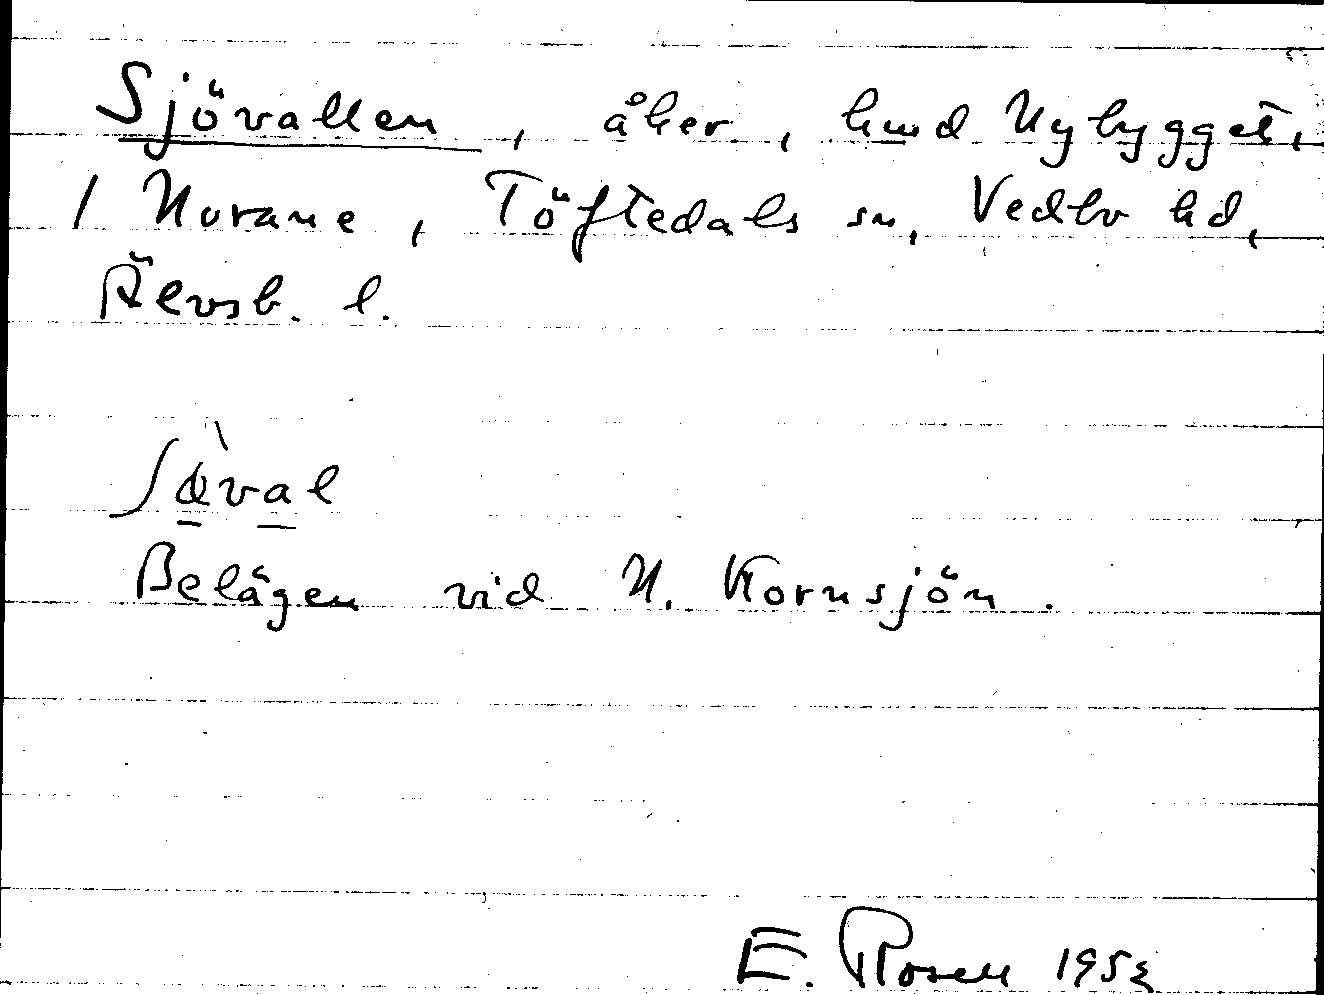 Sjövallen, åker, hmd Nybygget,
1 Norane, Töftedals sn, Vedbo hd,
Älvsb. l.
ʃø̀val
Belägen vid N. Kornsjön.
E. Rosell 195